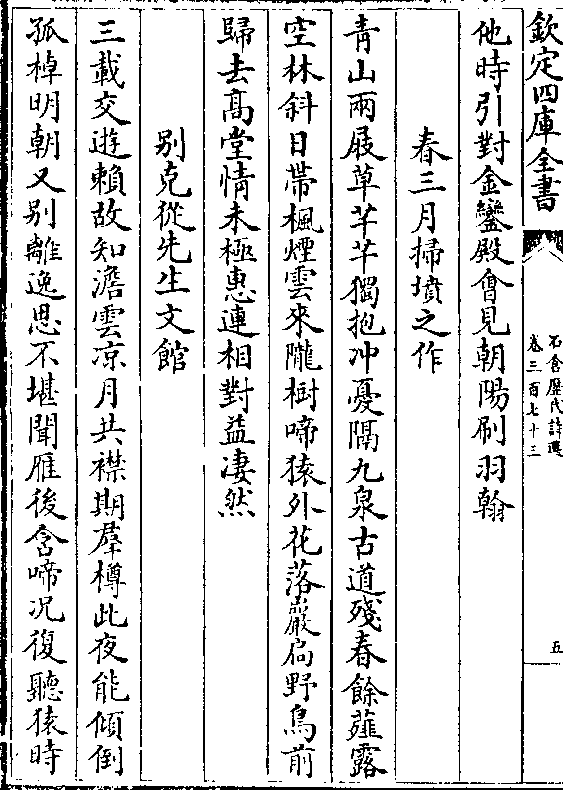 欽定四庫全書
石倉歷代詩選
卷三百七十三
五
他時引對金鑾殿會見朝陽刷羽翰
春三月掃墳之作
青山兩屐草芊芊獨抱冲憂隔九泉古道殘春餘薤露
空林斜日帶楓煙雲來隴樹啼猿外花落巖扃野鳥前
歸去髙堂情未極惠連相對益凄然
别克從先生文館
三載交遊賴故知澹雲凉月共襟期羣樽此夜能傾倒
孤棹明朝又别離逸思不堪聞雁後含啼况復聽猿時